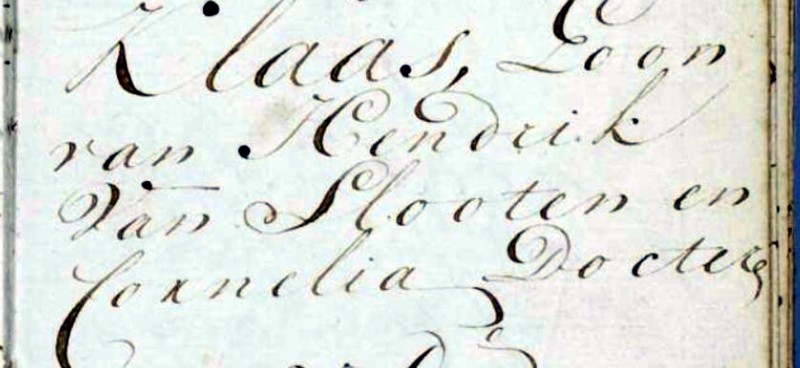 Klaas, Zoon
van Hendrik
Van Slooten en
Cornelia Docters